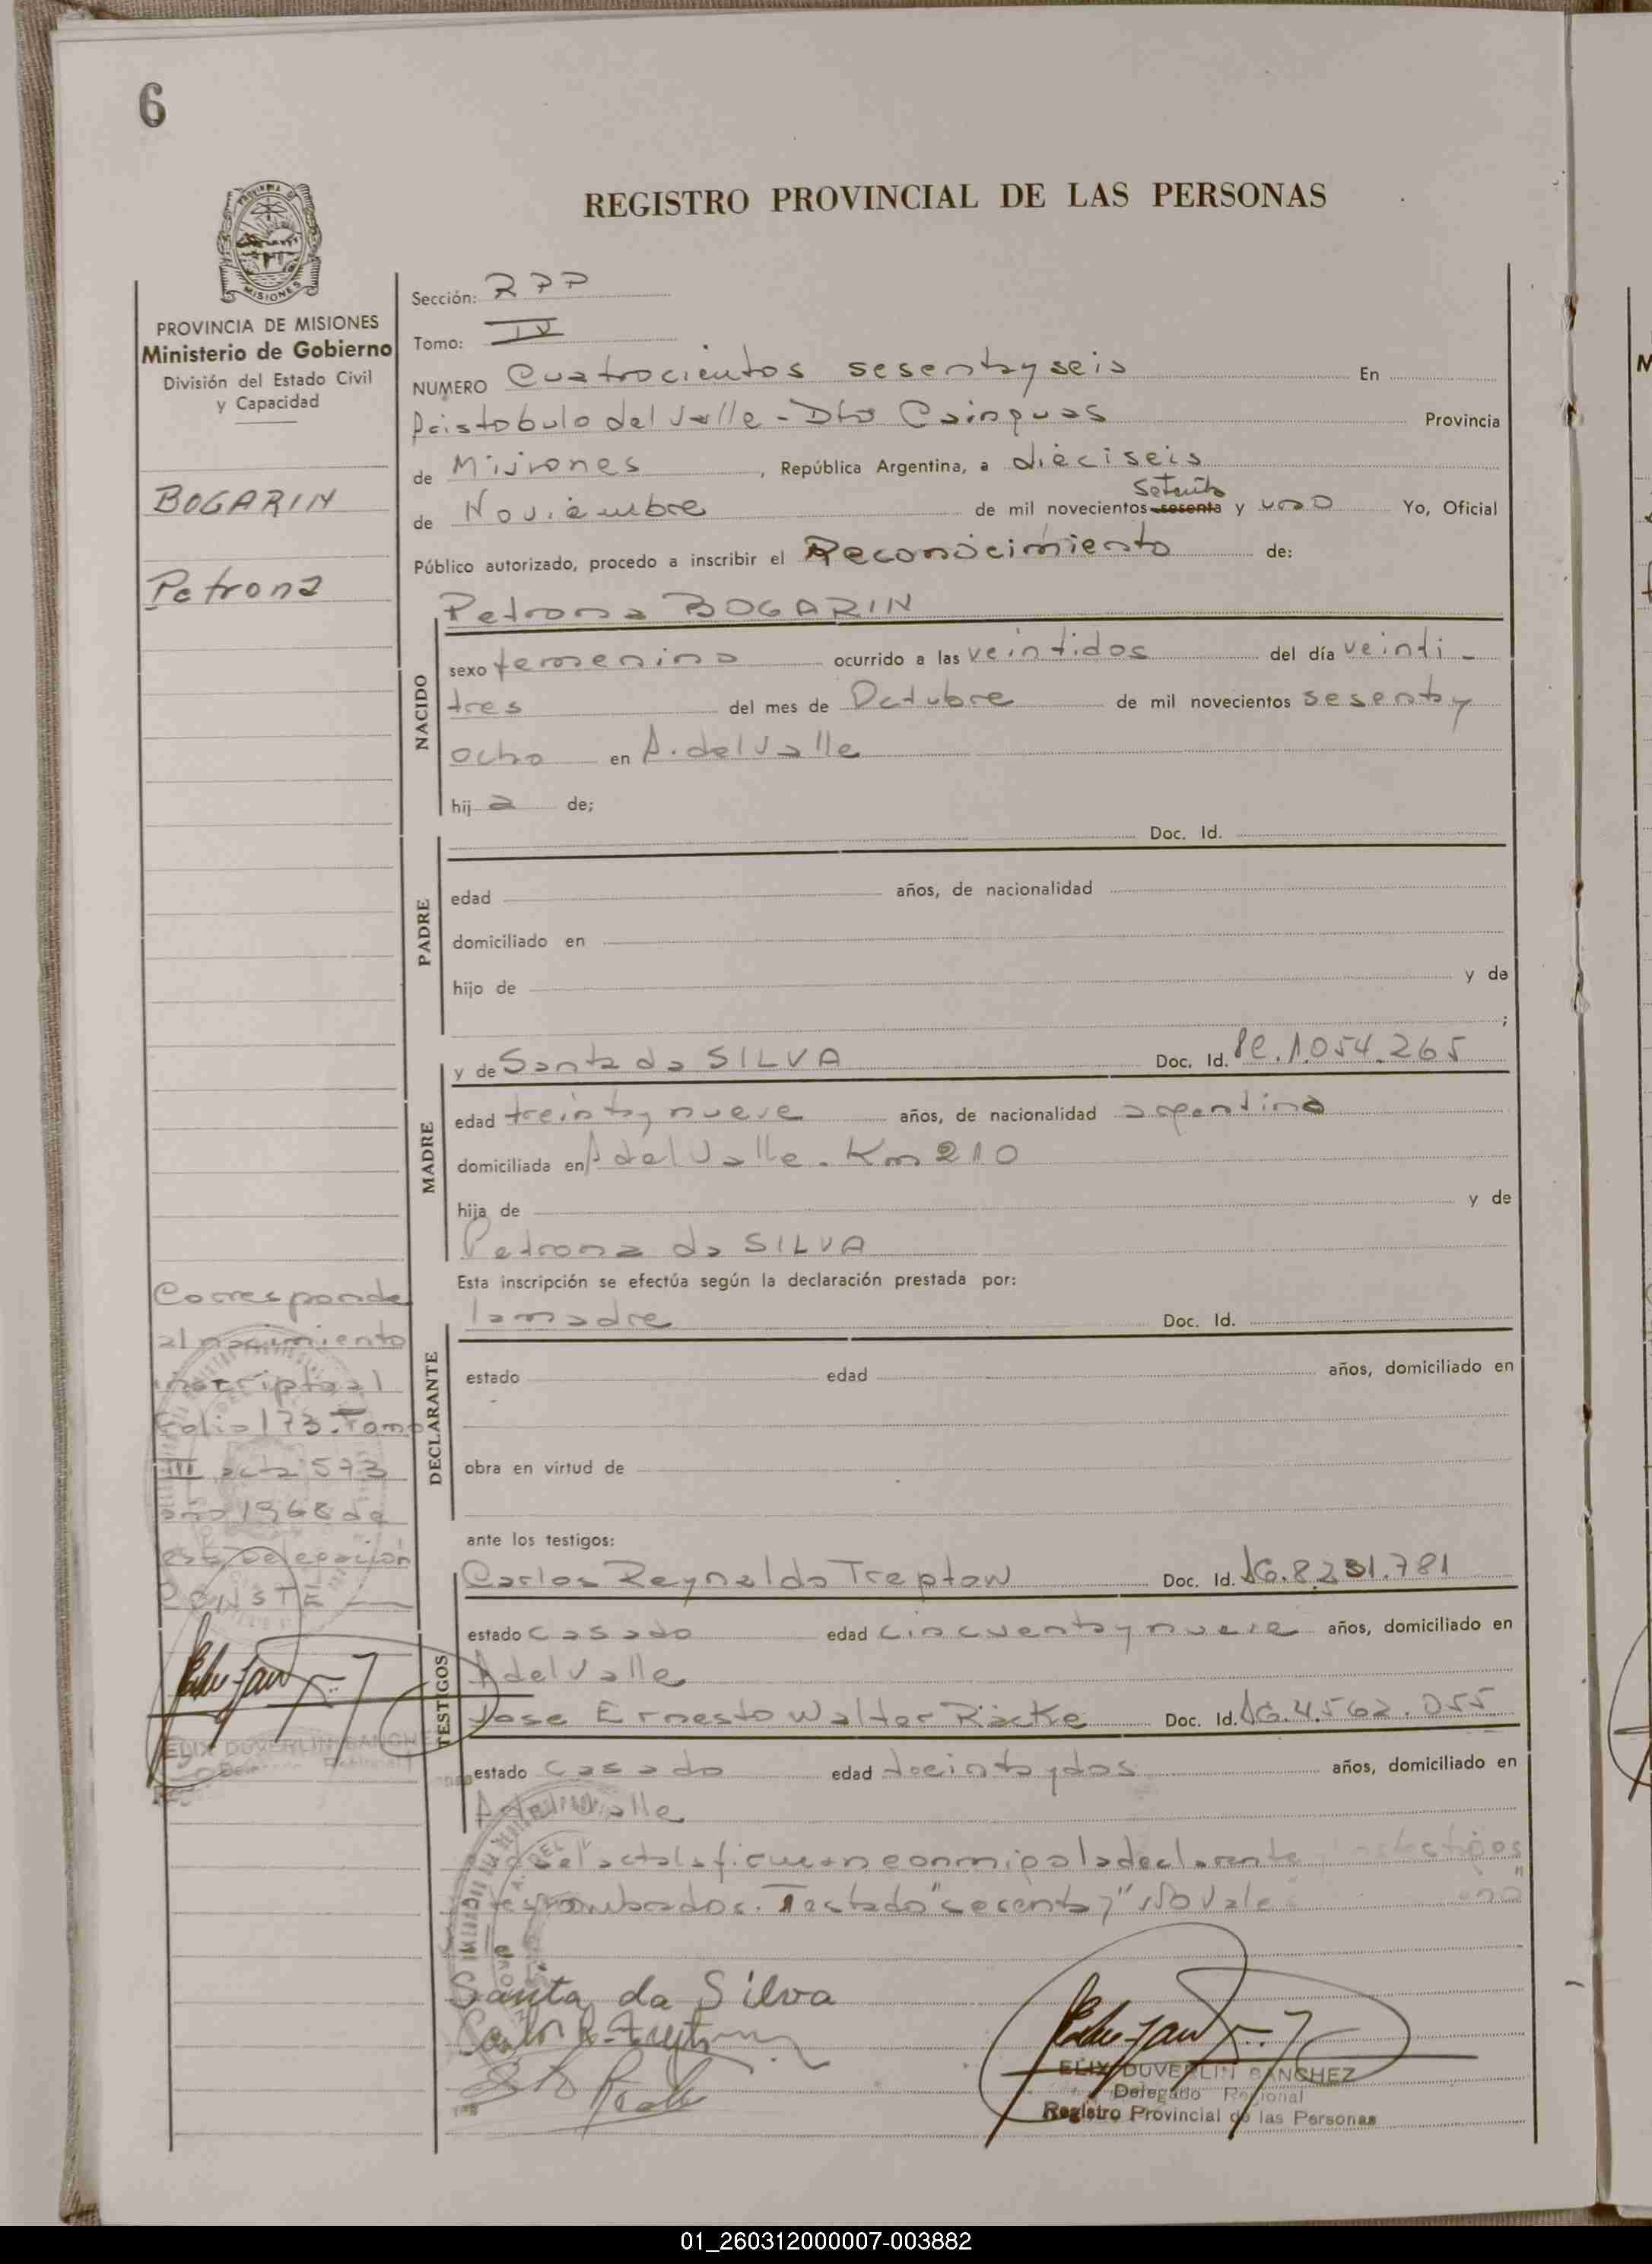 6
REGISTRO PROVINCIAL DE LAS PERSONAS
PROVINCIA DE MISIONES
Ministerio de Gobierno
División del Estado Civil
y Capacidad
BOGARIN
Petrona
Corresponde
al nacimiento
inscripto al
Folio 173. Tomo
III acta 573
año 1968 de
esta Delegación
CONSTE
ELIX DUVERLIN SANCHEZ
Sección: RPP
Tomo: IV
NUMERO Cuatrocientos sesentayseis En
Aristobulo del Valle - Dto Cainguas Provincia
de Misiones, República Argentina, a dieciseis
setenta
de Noviembre de mil novecientos sesenta y uno Yo, Oficial
Público autorizado, procedo a inscribir el Reconocimiento de:
Petrona BOGARIN
NACIDO
sexo femenino ocurrido a las veintidos del día veinti-
tres del mes de Octubre de mil novecientos sesentay
ocho en A. del Valle
hij a de;
Doc. Id.
PADRE
edad años, de nacionalidad
domiciliado en
hijo de y de
;
y de Santa da SILVA Doc. Id. 1.054.265
MADRE
edad treintay nueve años, de nacionalidad argentina
domiciliada en A del Valle. Km 210
hija de y de
Petrona da SILVA
Esta inscripción se efectúa según la declaración prestada por:
la madre Doc. Id.
DECLARANTE
estado edad años, domiciliado en
obra en virtud de
ante los testigos:
Carlos Reynaldo Treptow Doc. Id. 8.231.781
TESTIGOS
estado casado edad cincuentay nueve años, domiciliado en
A del Valle
Jose Ernesto Walter Räcke Doc. Id. 4.562.055
estado casado edad treintaydos años, domiciliado en
A del Valle
el acta la firman conmigo la declarante testigos
nombrados. Testado "sesentay" No Vale
Santa da Silva
ELIX DUVERLIN SANCHEZ
Delegado Regional
Registro Provincial de las Personas
01_260312000007-003882